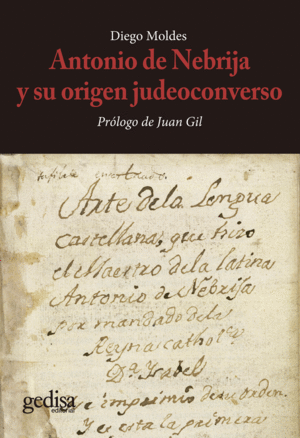 Diego Moldes
Antonio de Nebrija
y su origen judeoconverso
Prólogo de Juan Gil
Arte de la Lengua
castellana, que hizo
el Maestro de la latina
Antonio de Nebrija
por mandado de la
Reyna cathol.ᶜᵃ
D.ª Isabel
e imprimio de su orden.
Y es esta la primera
gedisa
editorial